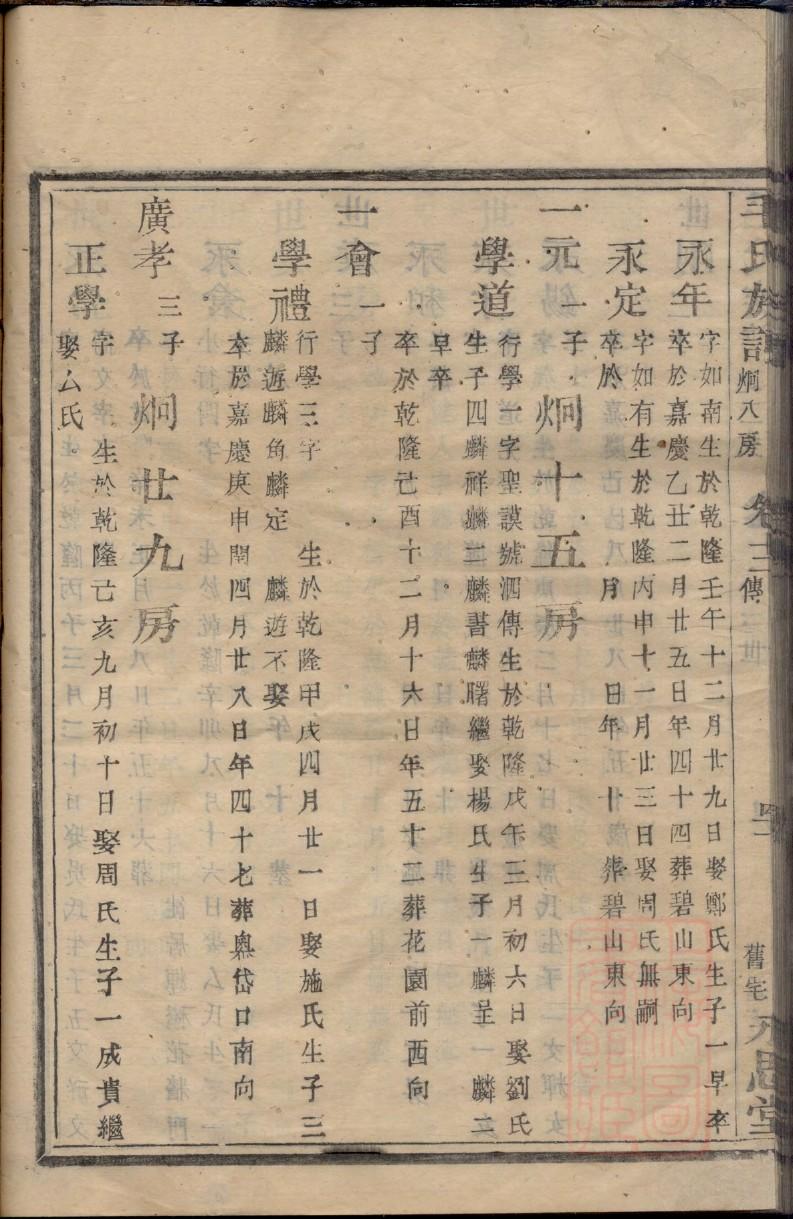 毛氏族譜 炯八房 卷十二 傳 世 舊宅 永思堂
永年 字如南生於乾隆壬午十二月廿九日娶鄭氏生子一早卒
卒於嘉慶乙丑二月廿五日年四十四葬碧山東向
永定 字如有生於乾隆丙申十一月廿三日娶周氏無嗣
卒於 月 日年 十 葬碧山東向
一元 一子 炯十五房
學道 行學一字聖謨號泗傳生於乾隆戊午三月初六日娶劉氏
生子四麟祥麟二麟書麟曙繼娶楊氏生子一麟呈一麟二
早卒
卒於乾隆己酉十二月十六日年五十二葬花園前西向
一會 一子
學禮 行學三字 生於乾隆甲戌四月廿一日娶施氏生子三
麟遊麟角麟定 麟遊不娶
卒於嘉慶庚申閏四月廿八日年四十七葬奧岱口南向
廣孝 三子 炯廿九房
正學 字 生於乾隆己亥九月初十日娶周氏生子一成貴繼
娶厶氏